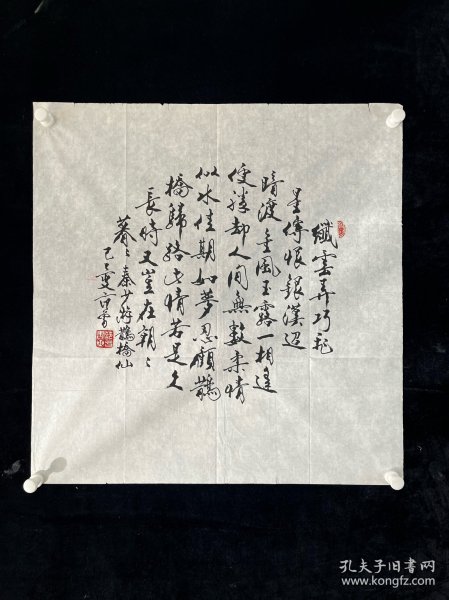 纖雲弄巧飛
星傳恨銀漢迢
暗渡金風玉露一相逢
便勝却人間無數柔情
似水佳期如夢忍顧鵲
橋歸路情若是久
長時又豈在朝〻
暮〻秦少游鵲橋仙
己巳夏
孔夫子旧书网
www.kongfz.com